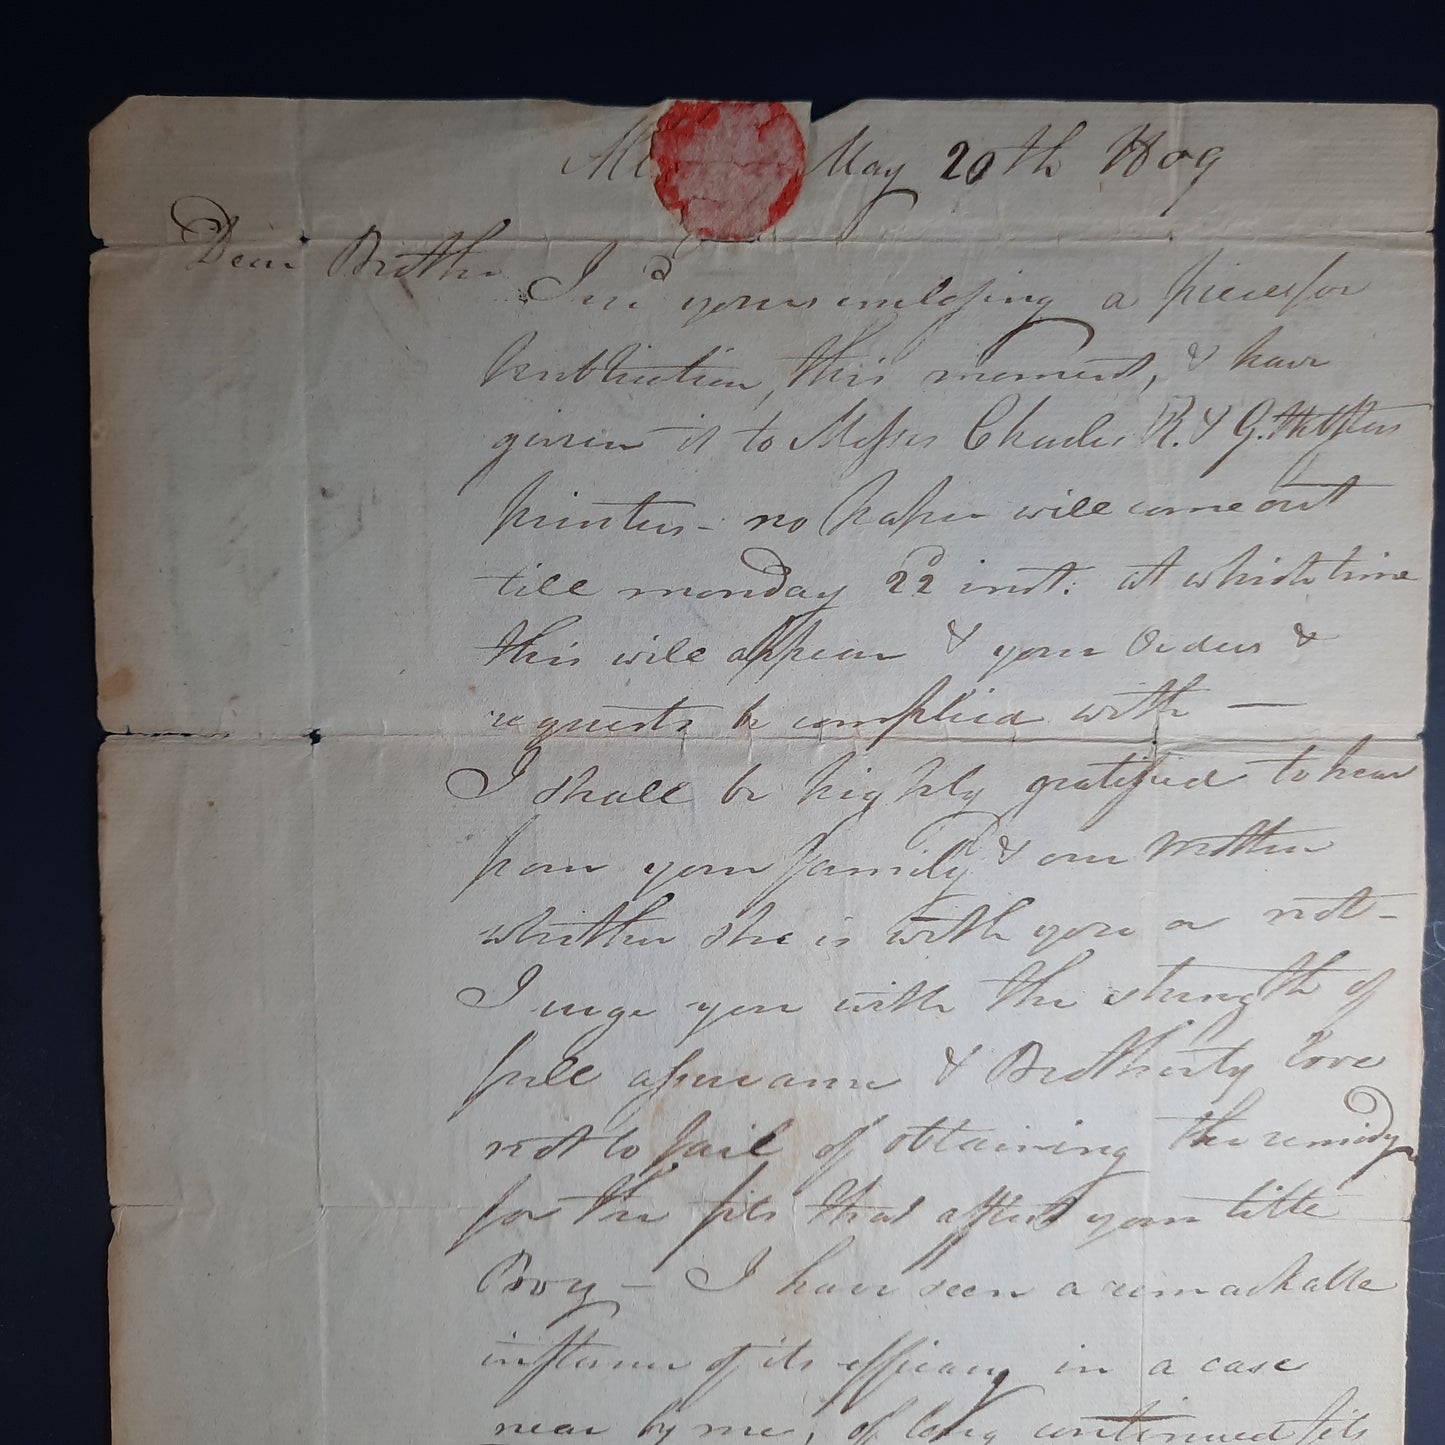 May 20th 1809
Dear Brother
I recd yours inclosing a piece for
Publication, this moment, & have
given it to Messrs Charles R. & G.
printers - no paper will come out
till monday 22d inst. at which time
this will appear & your Orders &
requests be complied with —
I shall be highly gratified to hear
from your family & our Mother
whither she is with you or not -
I urge you with the strength of
full assurance & Brotherly Love
not to fail of obtaining the remidy
for the fits that afflict your little
Boy - I have seen a remarkable
instance of its efficacy in a case
near by me, of long continued fits